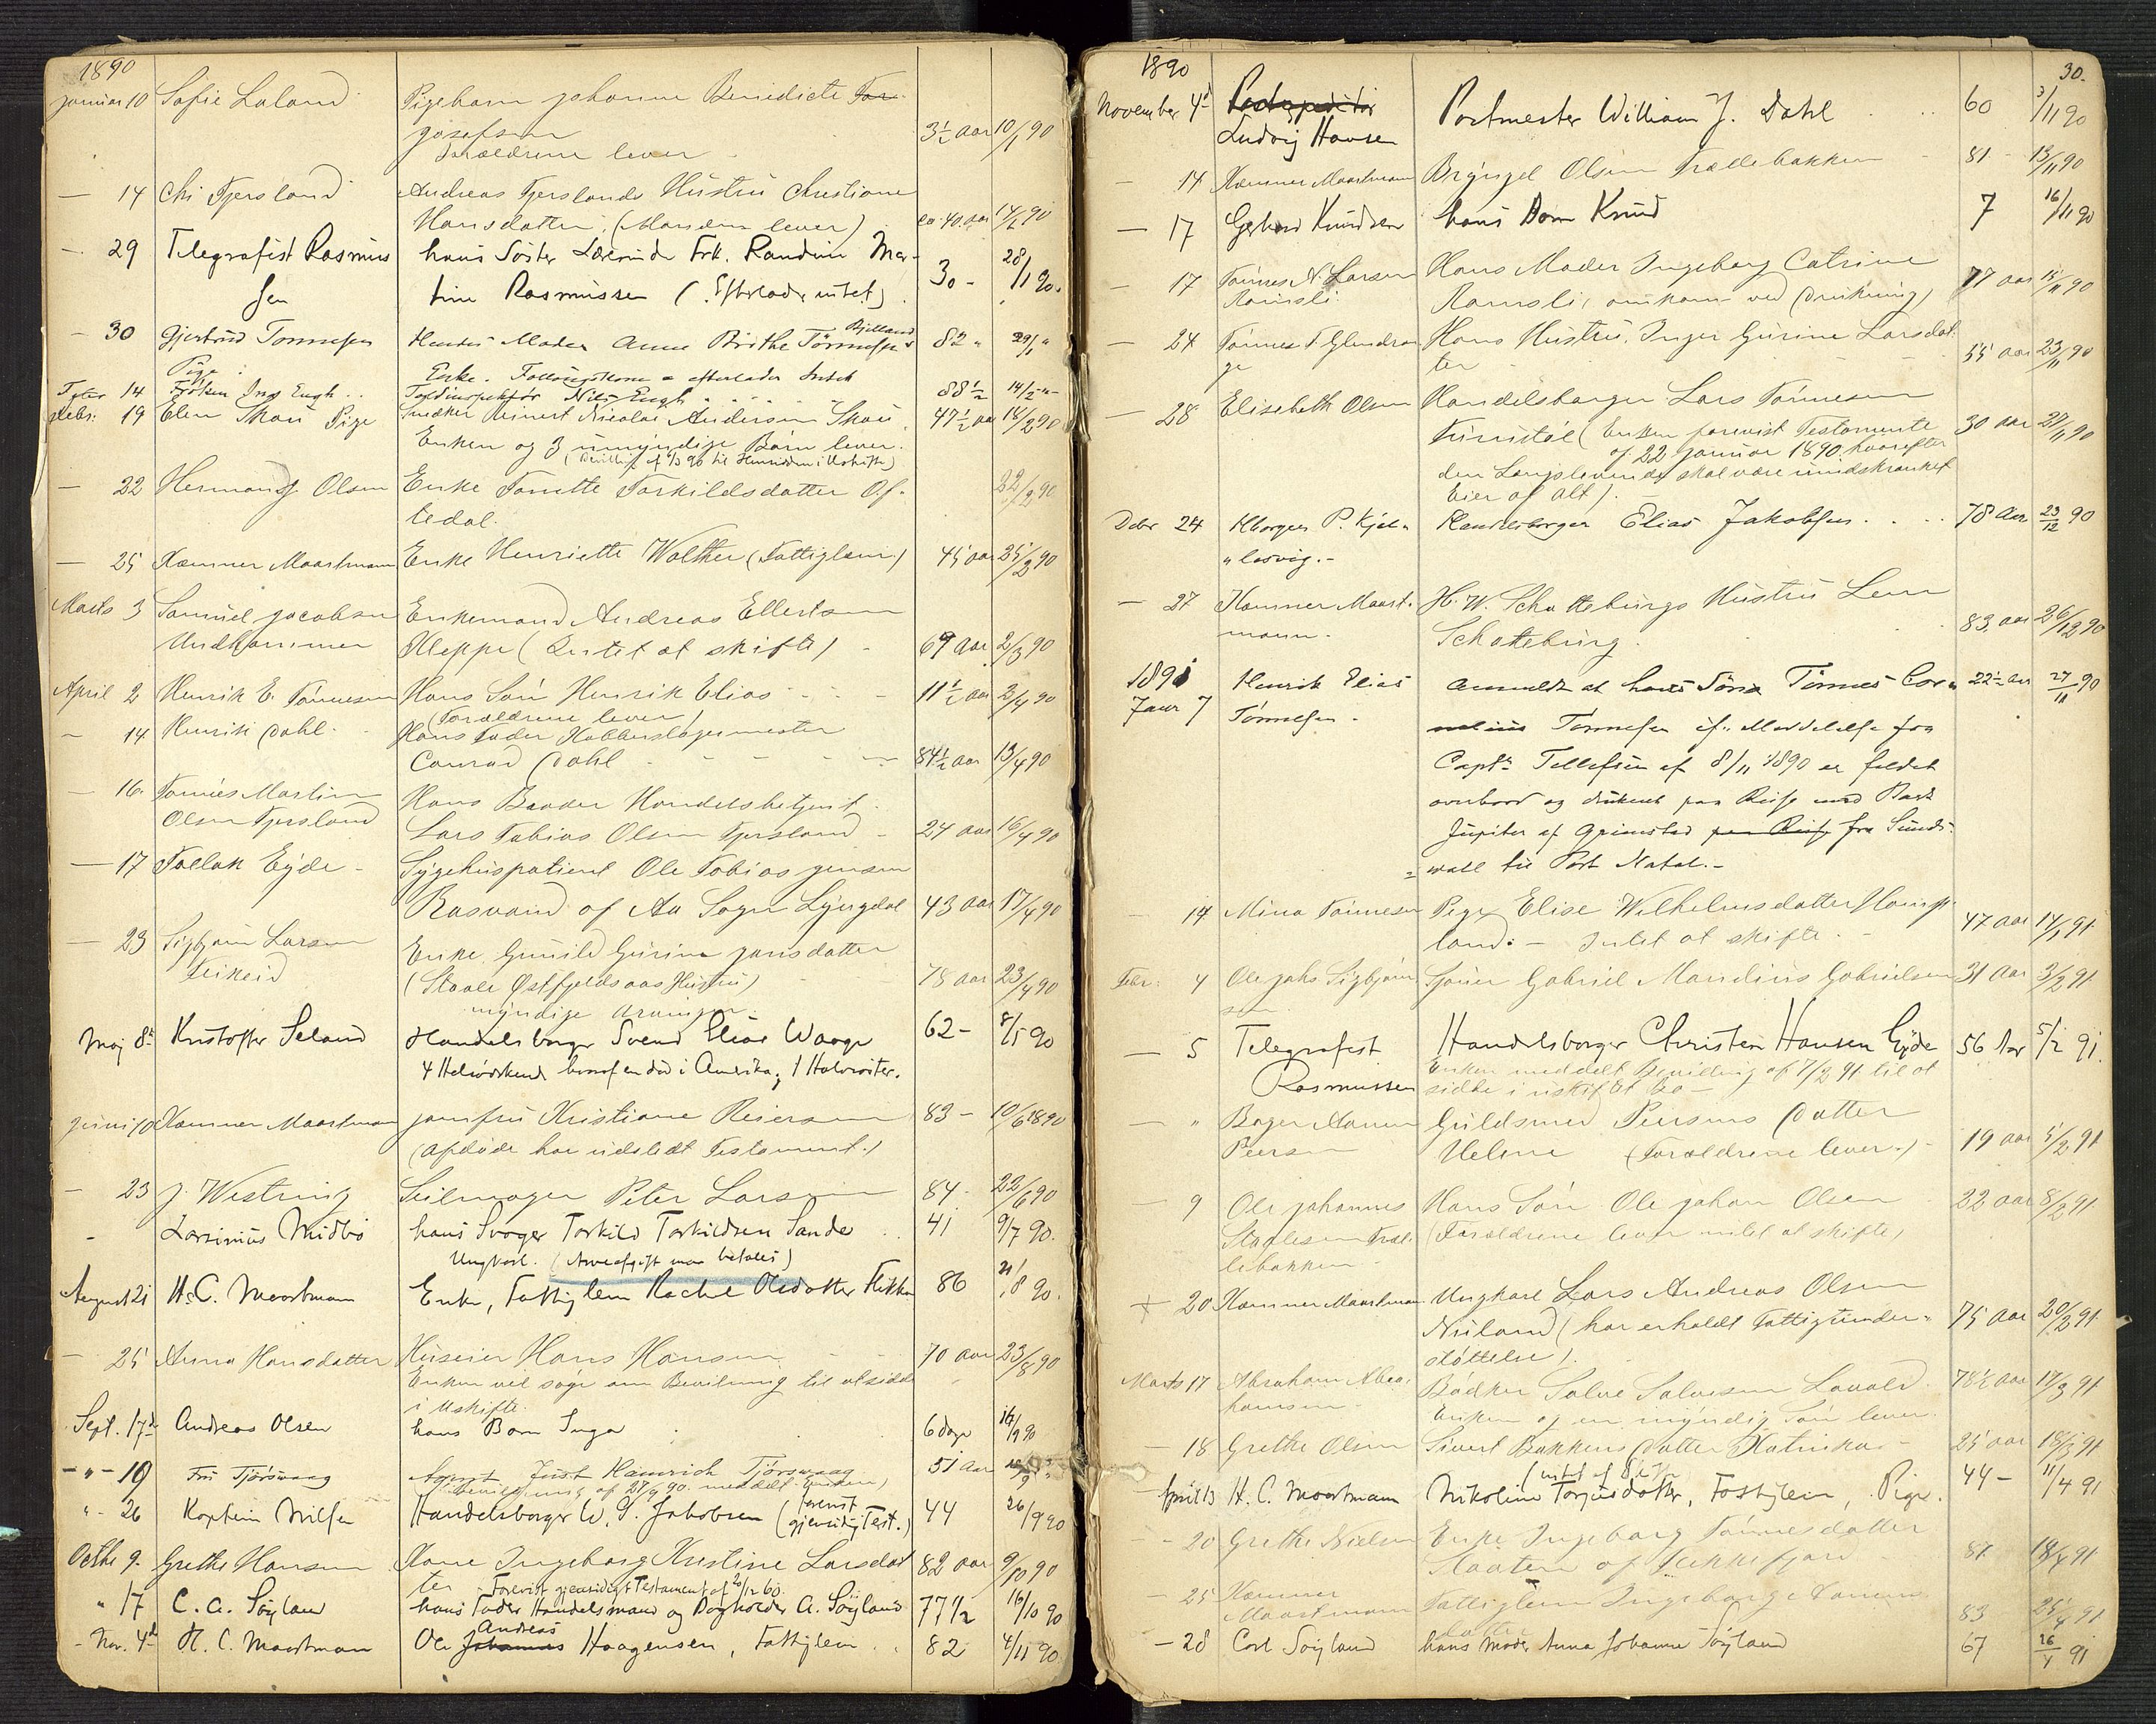 1890
januar 10 Sofie Laland Pigebarn Johanne Benedicte
Josefsen 3½ Aar 10/1 90
Forældrene lever
— 14 Chr Fjersland Andreas Fjerslands Hustru Christiane
Hansdatter. (Manden lever) ca 40 aar 14/1 90
— 29 Telegrafist Rasmus hans Søster Lærerinde Frk. Randine Mar-
sen tine Rasmussen (Efterlader intet) 30 - 28/1 90.
— 30 Gjertrud Tønnesen Hendes Moder Anne Birthe Tønnesen Bjelland 82 " 29/1 "
Enke. Fattigkone efterlader Intet
14 Frøken Ing Engh Toldinspektør Nils Engh 88½ 14/2 -"-
Febr: 19 Elen Skou Pige Snedker Reinert Nicolai Andersen Skou 47½ aar 18/2 90
Enken og 3 umyndige Børn lever.
22 Hermand Olsen Enke Tonette Torkildsdatter Of- 22/2 90
tedal.
— 25 Kæmner Maartmann Enke Henriette Walther (Fattiglem) 45 aar 25/2 90
Marts 3 Samuel Jacobsen Enkemand Andreas Ellertsen
Undhammer Kleppe (Intet at skifte) 69 aar 2/3 90
April 2 Henrik E. Tønnesen Hans Søn Henrik Elias 11½ aar 2/4 90
(Forældrene lever)
- 14 Henrik Dahl Hans Fader Kobberslagermester
Conrad Dahl 84½ aar 13/4 90
— 16. Tønnes Martin Hans Broder Handelsbetjent
Olsen Fjersland Lars Tobias Olsen Fjersland 24 aar 16/4 90
— 17 Tallak Eyde Sygehuspatient Ole Tobias Jensen
Rasvand af Aa Sogn Lyngdal 43 aar 17/4 90
— 23 Sigbjørn Larsen Enke Gunild Gurine Jansdatter
Feikeid (Staale Østfjeldsaas Hustru) 78 aar 23/4 90
myndige Arvinger.
Maj 8de Kristoffer Seland Handelsborger Svend Elias Waage 62 - 8/5 90
4 Helsødskende hvoraf en død i Amerika, 1 Halvsøster.
Juni 10 Kæmner Maartmann jomfru Kristiane Reiersen 83 - 10/6 1890
(afdøde har udstedt Testament.)
— 23 J. Westring Seilmager Peter Larsen 84 - 22/6 90
- Larsinius Midbø hans Svoger Torkild Torkildsen Sande 41 9/7 90.
Ungkarl. (Arveafgift maa betales)
August 21 H. C. Maartmann Enke, Fattiglem Rachel Olsdatter Flikka 86 21/8 90.
— 25 Anna Hansdatter Huseier Hans Hansen 70 aar 23/8 90
Enken vil søge om Bevilning til at sidde
i Uskifte.
Sept. 17de Andreas Olsen hans Barn Inga 6 dage 16/9 90
-"- 19 Fru Tjørsvaag Agent Just Heinrich Tjørsvaag 51 Aar
"- 26 Kaptein Nilsen Handelsborger W. S. Jakobsen (forevist gjensidigt Test.) 44 26/9 90
Octbr 9. Grethe Hansen Kone Ingeborg Kristine Larsdat 82 aar 9/10 90
ter Forevist gjensidigt Testament af 20/12 60.
" 17 C. A. Søyland hans Fader Handelsmand og Bogholder A. Søyland 77½ 16/10 90
Nov. 4de H. C. Maartmann Ole Andreas Haagensen, Fattiglem. 82 4/11 90
1890 30.
November 4de Postexpeditør Postmester William J. Dahl 60 3/11 90
Ludvig Hansen
— 14 Kæmner Maartmann Bryngel Olsen Trællebakken 81 - 13/11 90
— 17 Gerhard Knudsen hans Barn Knud 7 16/11 90
— 17 Tønnes N. Larsen Hans Moder Ingeborg Catrine
Ramsli Ramsli, omkom ved (drukning) 77 aar 15/11 90
— 24 Tønnes T Glendran Hans Hustru. Inger Gurine Larsdat
ge ter 55 aar 23/11 90
— 28 Elisabeth Olsen Handelsborger Lars Tønnesen
(Enken forevist Testamente 30 aar 27/11 90
af 22 januar 1890 hvorefter
den Længstlevende skal være uindskrænket
Eier af alt).
Decbr 24 Hborger P. Kjel- Handelsborger Elias Jakobsen 78 Aar 23/12 90
"lesvig.-
— 27 Kæmner Maart- H. W. Schatteburgs Hustru Lene
mann. Schatteburg. 83 aar 26/12 90
1891
Janr 7 Henrik Elias Anmeldt at hans Søn Tønnes Cor- 22½ aar 27/11 90
Tønnesen - nelius Tønnesen if. Meddelelse fra
Captn Tellefsen af 8/11 1890 er faldet
overbord og druknet paa Reise med Bark
Jupiter af Grimstad paa Reise fra Sunds-
wall til Port Natal.-
— 14 Mina Tønnesen Pige Elise Wilhelmsdatter
land: - Intet at skifte. - 47 aar 14/1 91
Febr: 4 Ole Johs Sigbjørn Gabriel Mandius Gabrielsen 31 Aar 3/2 91
sen
— 5 Telegrafist Handelsborger Christen Hansen Eyde 56 Aar 5/2 91.
Rasmussen Enken meddelt Bevilling af 7/2 91 til at
sidde i uskiftet Bo —
— " Bager Aanen Guldsmed Peersens Datter
Peersen Helene (Forældrene lever.) 19 aar 5/2 91
— 9 Ole Johannes Hans Søn Ole Johan Olsen 22 aar 8/2 91
Staalesen Træl- (Forældrene lever intet at skifte)
lebakken
20 Kæmner Maartmann Ungkarl Lars Andreas Olsen
Nuland (har erholdt Fattigunder- 75 aar 20/2 91
støttelse).
Marts 17 Abraham Abra- Bødker Salve Salvesen Lavold 78½ aar 17/3 91
hamsen - Enken og en myndig Søn lever.
— 18 Grethe Olsen Sivert Bakkens Datter Katrinka - 25 aar 18/3 91
April 13 H. C. Maartmann Nikoline Torjusdatter, Fattiglem, Pige. 44 - 11/4 91
- 20 Grethe Nielsen Enke Ingeborg Tønnesdatter
Slaaten af Fækkefjord 87 18/4 91
— 25 Kæmner Fattiglem Ingeborg Aanen
Maartmann datter 83 25/4 91
— 28 Carl Søyland hans Moder Anna Johanne Søyland 67 26/4 91